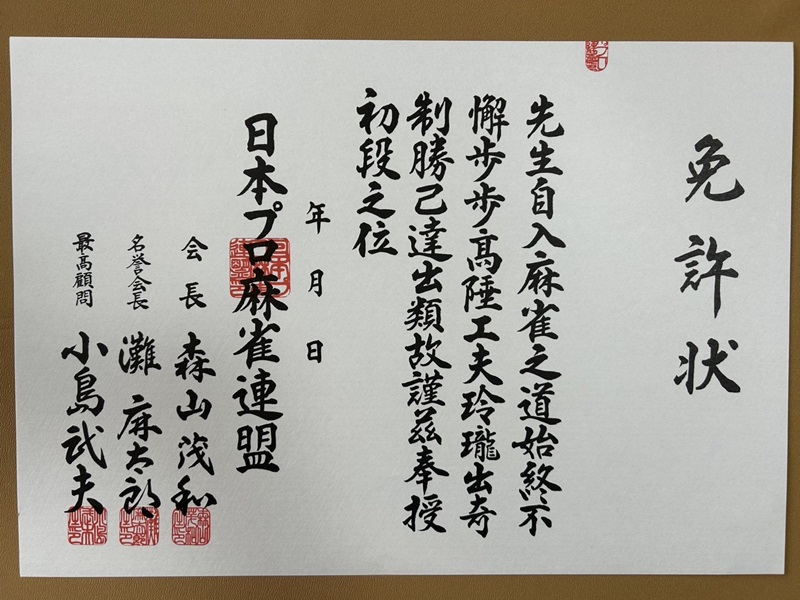 免許状
先生自入麻雀之道始終不
懈歩歩高陞工夫玲瓏出奇
制勝己達出類故謹茲奉授
初段之位
年 月 日
日本プロ麻雀連盟
会長 森山茂和
名誉会長 灘麻太郎
最高顧問 小島武夫